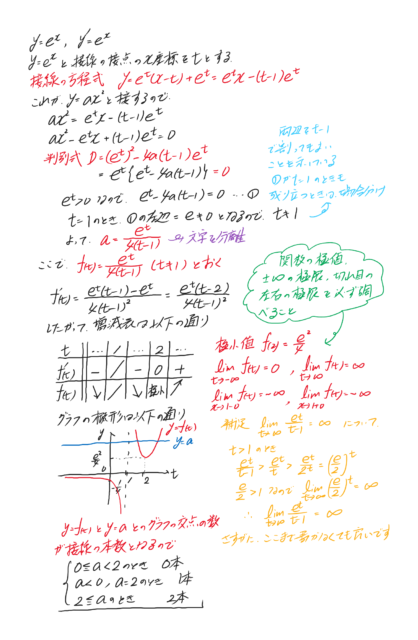 y=e^x, y'=e^x
y=e^xと接線の接点のx座標をtとする
接線の方程式 y=e^t(x-t)+e^t=e^tx-(t-1)e^t
これが y=ax²と接するので
ax²=e^tx-(t-1)e^t
ax²-e^tx+(t-1)e^t=0
判別式 D=(e^t)²-4a(t-1)e^t
=e^t{e^t-4a(t-1)}=0
e^t>0なので e^t-4a(t-1)=0 …①
t=1のとき、①の左辺=e≠0となるので t≠1
両辺をt-1
で割ってもよい
ことを示している
①がt=1のときも
成り立つときは場合分け
よって a=e^t/4(t-1) ←文字を分離
ここで f(t)=e^t/4(t-1) (t≠1)とおく
f'(t)=e^t(t-1)-e^t/4(t-1)²=e^t(t-2)/4(t-1)²
したがって増減表は以下の通り
関数の極値、
±∞の極限、切れ目の
左右の極限を必ず調
べること
t … / … 2 …
f'(t) - / - 0 +
f(t) ↘ / ↘ 極小 ↗
極小値 f(2)=e²/4
lim t→-∞ f(t)=0, lim t→∞ f(t)=∞
lim t→1-0 f(t)=-∞, lim t→1+0 f(t)=-∞
グラフの概形は以下の通り
y
y=f(t)
y=a
e²/4
0
1
2
t
補足 lim t→∞ e^t/t-1=∞ について
t>1のとき
e^t/t-1>e^t/t>e^t/2^t=(e/2)^t
e/2>1なので lim t→∞ (e/2)^t=∞
∴ lim t→∞ e^t/t-1=∞
さすがに、ここまで書かなくても方いです
y=f(t)とy=aとのグラフの交点の数
が接線の本数となるので
0≦a<2のとき 0本
a<0, a=2のとき 1本
2≦aのとき 2本